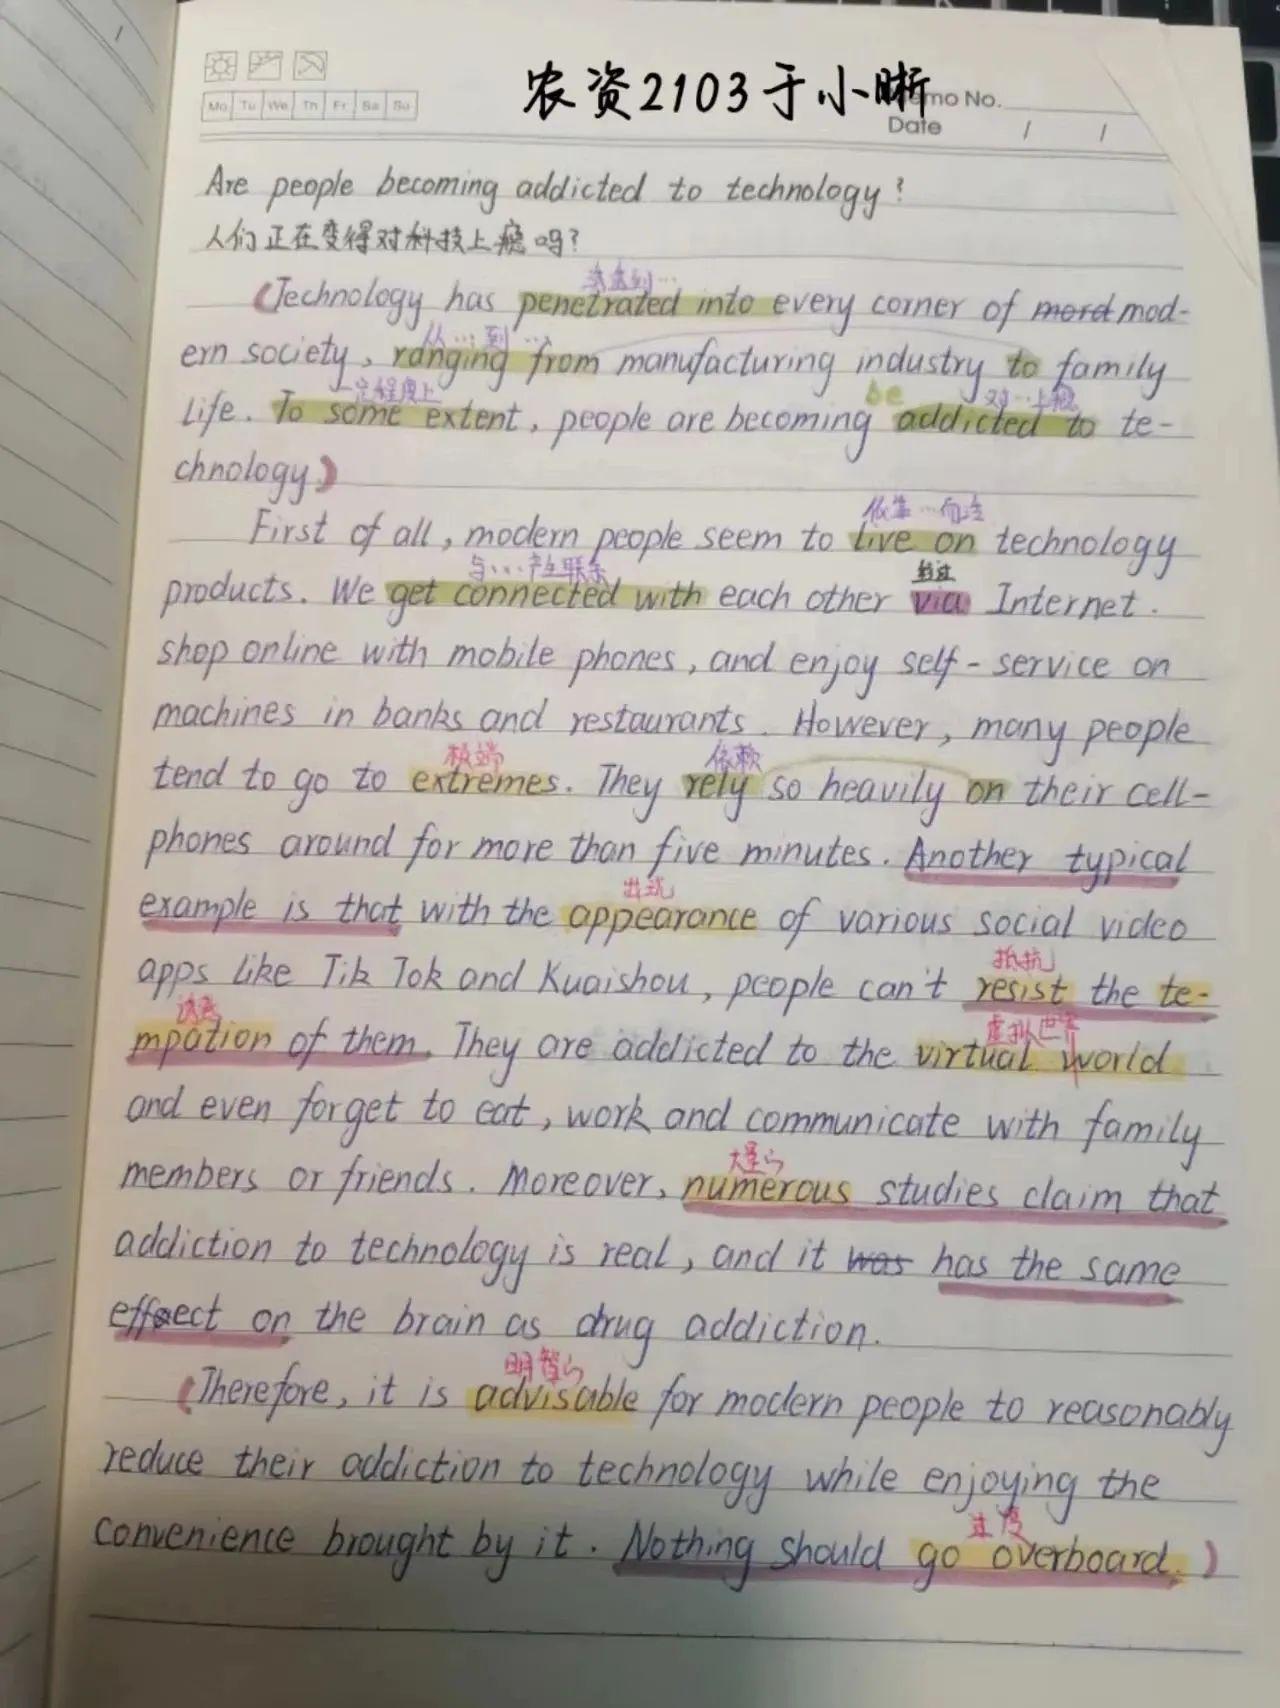 Mo Tu We Th Fr Sa Su
农资2103于小晰
Memo No.
Date / /
Are people becoming addicted to technology?
人们正在变得对科技上瘾吗?
渗透到…
(Technology has penetrated into every corner of mord mod-
从…到…
ern society, ranging from manufacturing industry to family
一定程度上 be 对…上瘾
life. To some extent, people are becoming addicted to te-
chnology)
依靠…而活
First of all, modern people seem to live on technology
与…产生联系 经过
products. We get connected with each other via Internet.
shop online with mobile phones, and enjoy self-service on
machines in banks and restaurants. However, many people
极端 依赖
tend to go to extremes. They rely so heavily on their cell-
phones around for more than five minutes. Another typical
出现
example is that with the appearance of various social video
抵抗
apps like Tik Tok and Kuaishou, people can't resist the te-
诱惑 虚拟世界
mpation of them. They are addicted to the virtual world
and even forget to eat, work and communicate with family
大量的
members or friends. Moreover, numerous studies claim that
addiction to technology is real, and it was has the same
effect on the brain as drug addiction.
明智的
(Therefore, it is advisable for modern people to reasonably
reduce their addiction to technology while enjoying the
过度
convenience brought by it. Nothing should go overboard.)